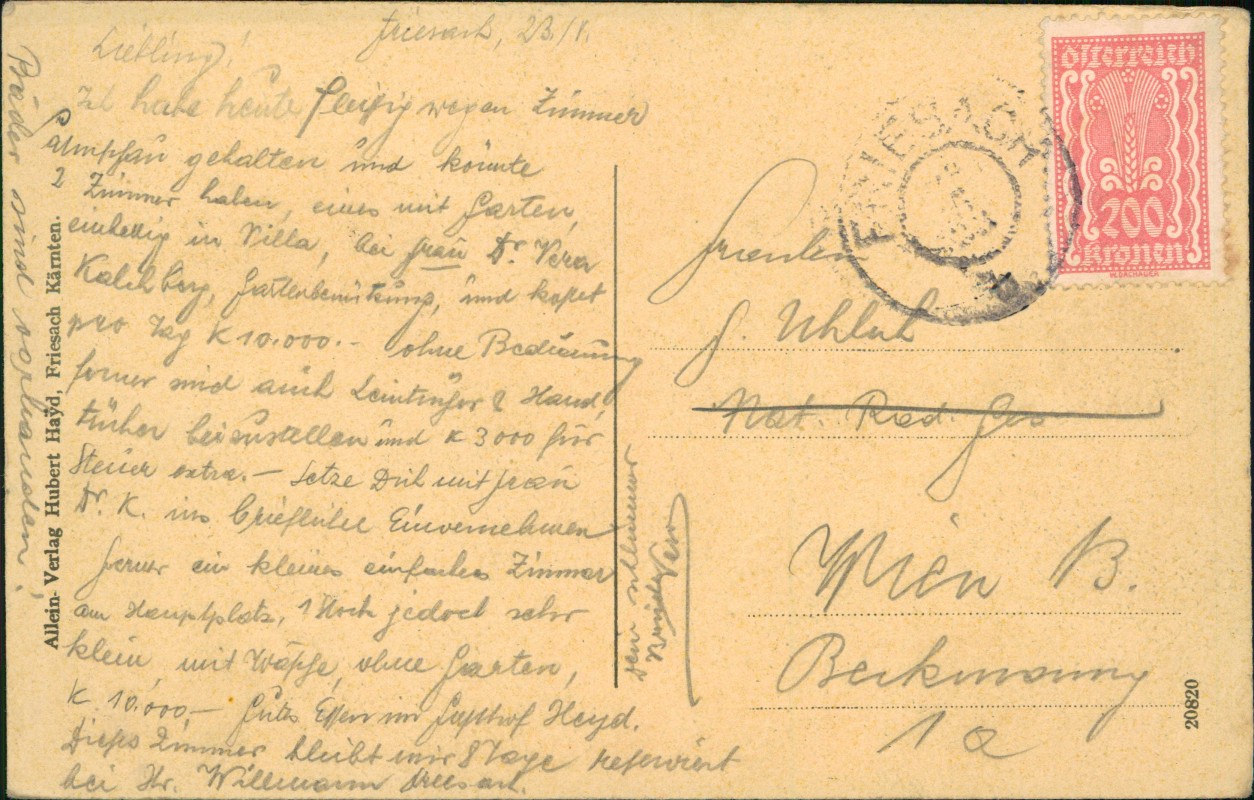 Friesach, 23./V.
Liebling!
Ich habe heute fleißig wegen Zimmer
gehalten und könnte
2 Zimmer haben, eines mit Garten,
einbettig in Villa, bei Frau Dr. Vera
Kalchberg, Gartenbenützung, und kostet
pro Tag K 10.000.- ohne Bedienung
ferner sind auch Leintücher & Hand-
tücher beizustellen und K 3000 für
Steuer extra. - Setze Dich mit Frau
Dr. K. ins briefliche Einvernehmen
ferner ein kleines einfaches Zimmer
am Hauptplatz, 1 Stock jedoch sehr
klein, mit Wäsche, ohne Garten,
K 10.000,- Gutes Essen im Gasthof Heyd.
Dieses Zimmer bleibt mir 8 Tage reserviert
bei Hr. Willmann Friesach.
Bäder sind vorhanden!
Allein-Verlag Hubert Hayd, Friesach Kärnten.
Dein schlimmer
Österreich
200
Kronen
FRIESACH
Fräulein
G. Uhlik
Nat. Rad. Ges
Wien B.
Beckmanng
1a
20820